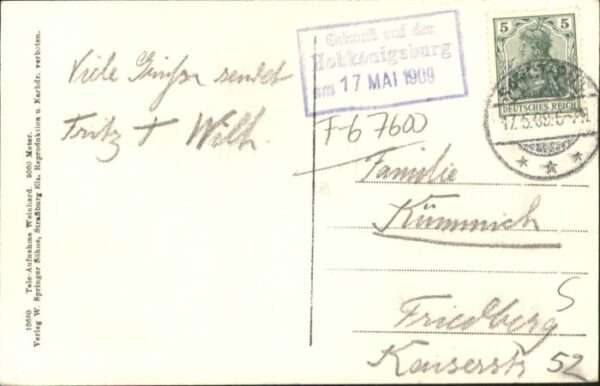 Viele Grüße sendet
Fritz + Wilh.
Gekauft auf der
Hohkönigsburg
am 17 MAI 1909
5 5
DEUTSCHES REICH
17.5.09.5-
F-6 7600
Familie
Kümmich
Friedberg
Kaiserstr 52
Tele-Aufnahme Weinhard. 5000 Meter.
Verlag W. Springer Söhne, Straßburg Els. Reproduktion u. Nachdr. verboten.